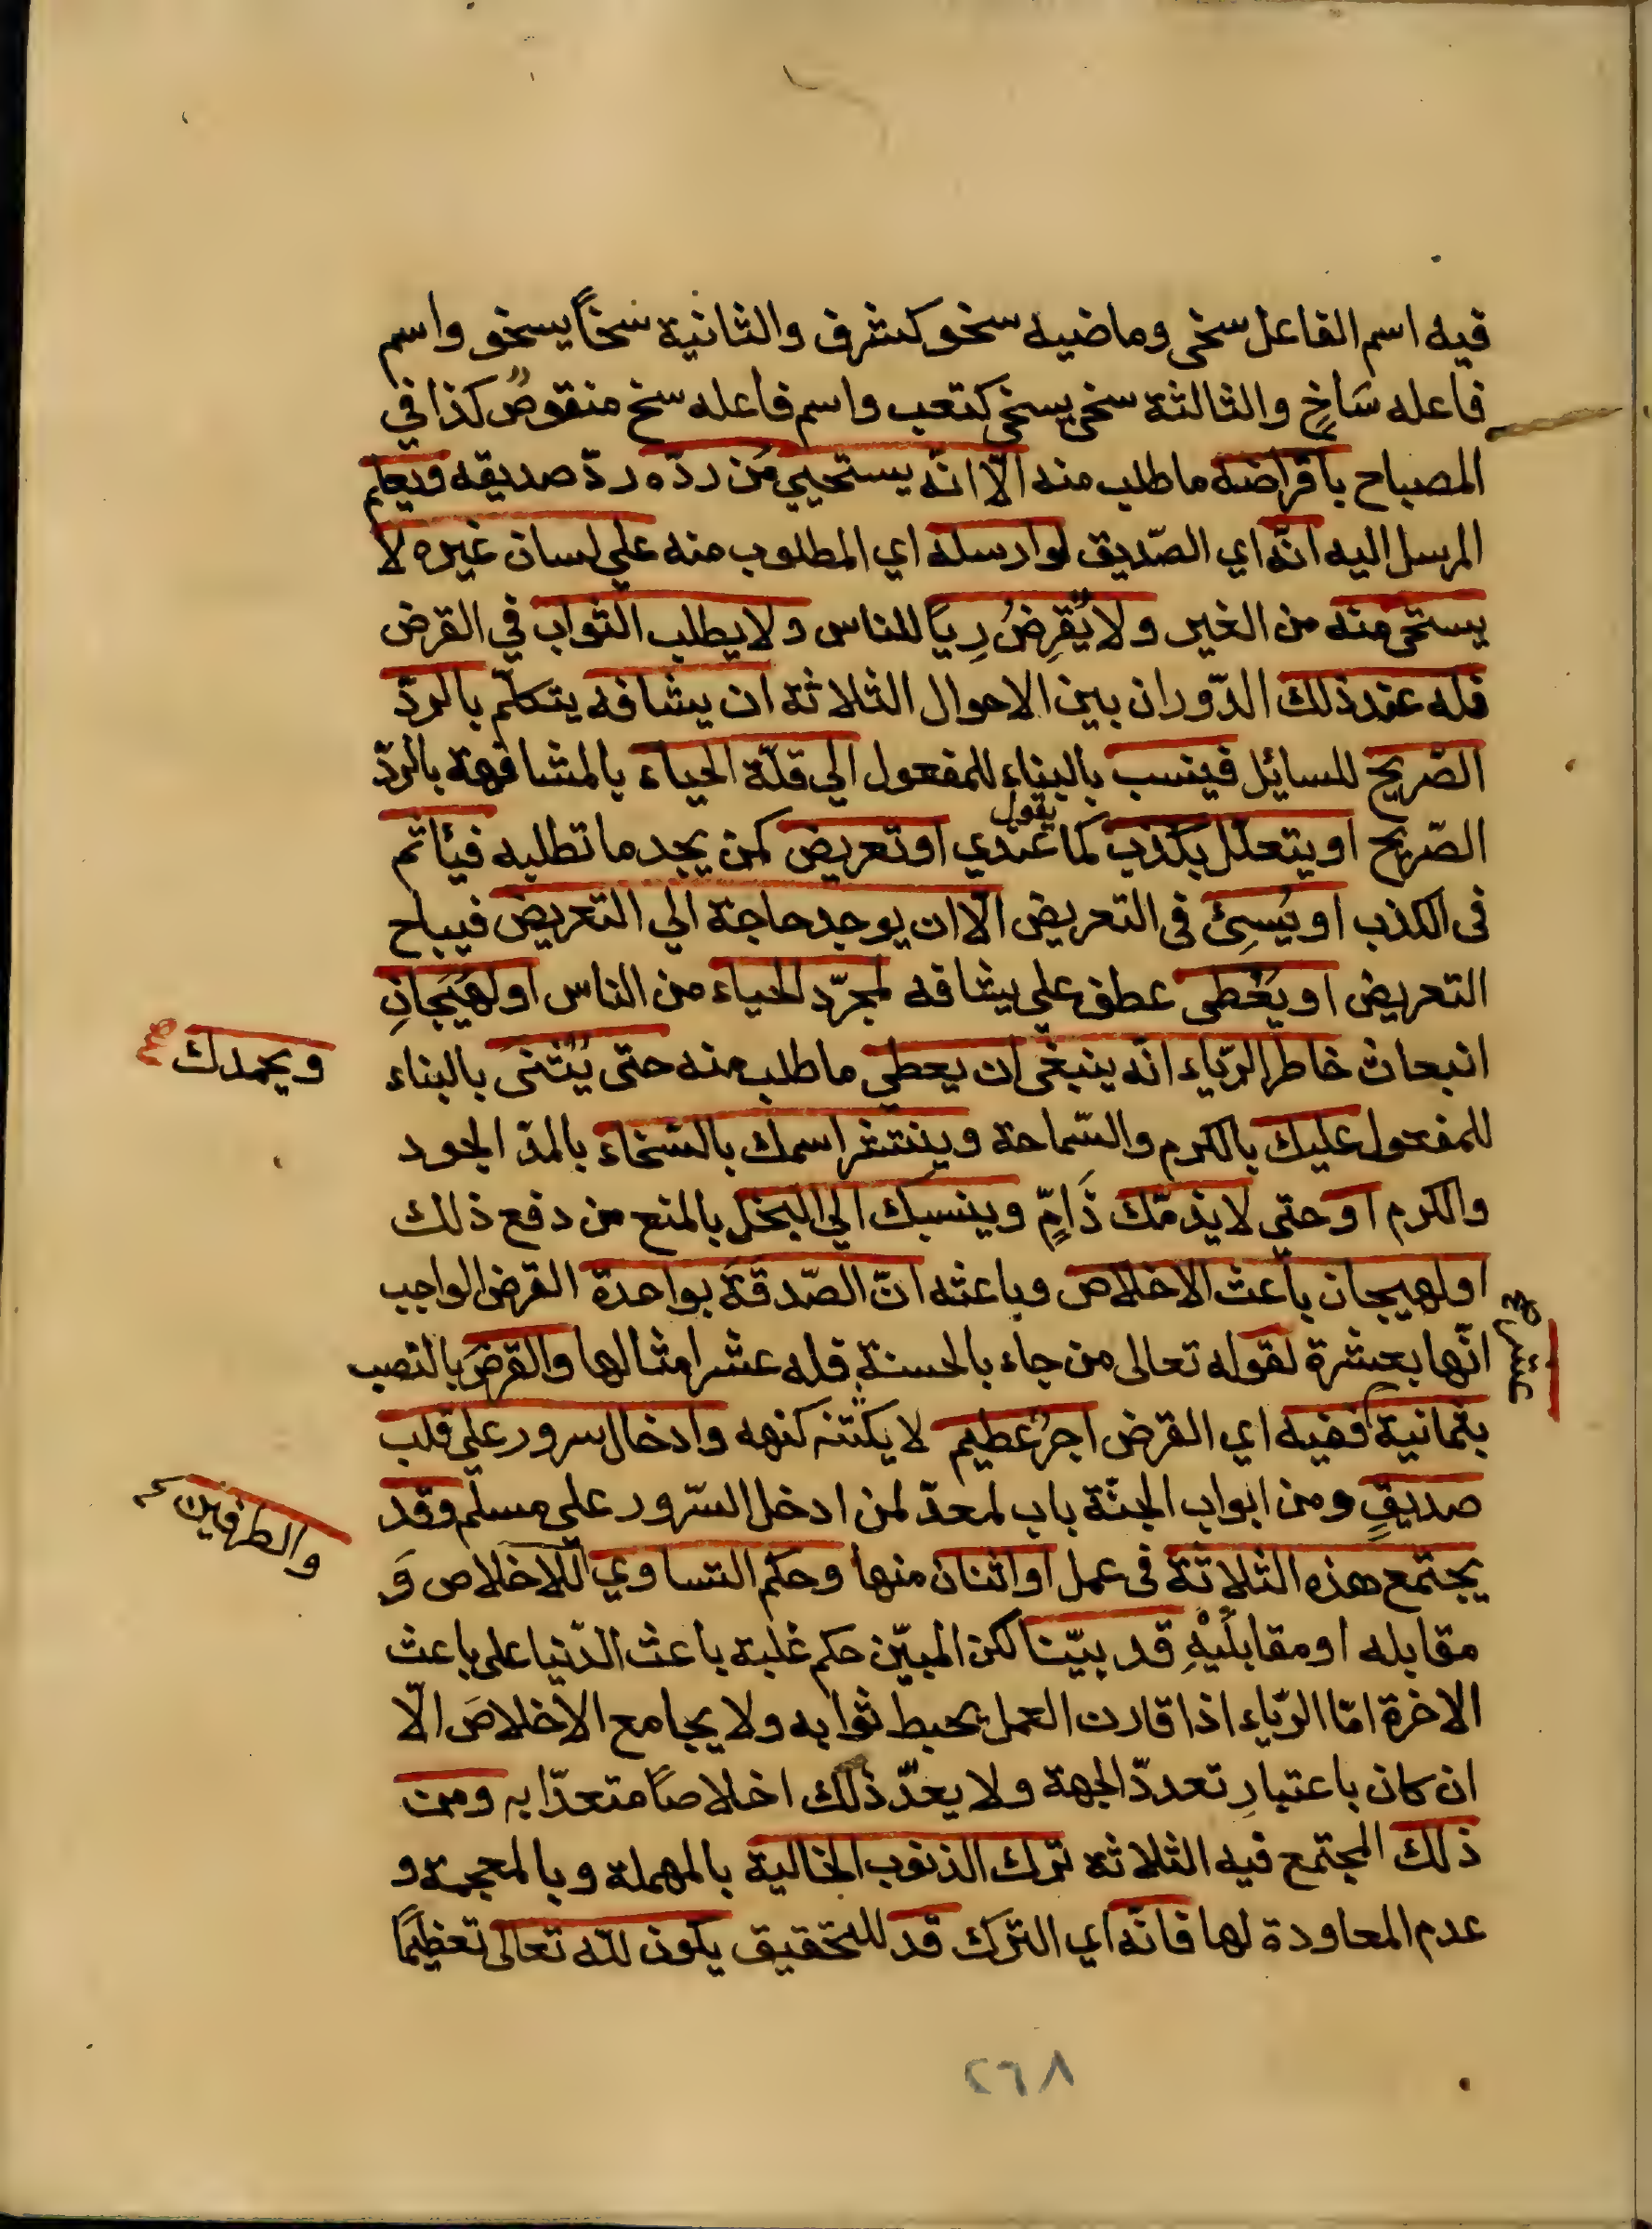 فيه اسم الفاعل سخى وماضيه سخو كشرف والثانية سخاً يسخو واسم
فاعله سَاخٍ والثالثة سخى يسخى كتعب واسم فاعله سخ منقوصٌ كذا في
المصباح باقراضه ما طلب منه الّا انّه يستحيي من ردّه ردّ صديقه ويعلم
المرسل اليه انّه اي الصّديق لو ارسله اي المطلوب منه علي لسان غيره لا
يستحى منه من الغير ولا يُقرِضُ رِياً للناس ولا يطلب الثواب في القرض
فله عند ذلك الدّوران بين الاحوال الثلاثة ان يشافه يتكلّم بالردّ
الصّريح للسايل فينسب بالبناء للمفعول الي قلّة الحياء بالمشافهة بالردّ
الصّريح او يتعلّل بكذب كما يقول عندي او تعريض كمن يجد ما تطلبه فيأثم
فى الكذب او يُسِئ فى التعريض الّا ان يوجد حاجة الي التعريض فيباح
التعريض او يَعْطى عطف علي يشافه لمجرّد الحياء من الناس او لهَيَجانِ
انبعاث خاطر الرّياء انّه ينبغى ان يعطي ما طلب منه حتى يُثنى بالبناء
ويحمدك صح
للمفعول عليك بالكرم والسّماحة وينتشر اسمك بالسّخاء بالمدّ الجود
والكرم او حتى لا يذمّك ذَامٌّ وينسبك الي البخل بالمنع من دفع ذلك
او لهيجان باعث الاخلاص وباعثه انّ الصّدقة بواحدة القرض الواجب
انّها بعشرة لقوله تعالى من جاء بالحسنة فله عشر امثالها والقرضَ بالنصب
عشر صح
بثمانية ففيه اي القرض اجرٌ عظيم لا يكتنه كنهه وادخال سرور علي قلب
صديقٍ ومن ابواب الجنّة باب لمعدّ لمن ادخل السّرور على مسلم وقد
يجتمع هذه الثلاثة فى عمل او اثنان منها وحكم التساوي للاخلاص وَ
والطرفين
مقابله او مقابلَيْهِ قد بيّنا لكن المبيّن حكم غلبة باعث الدّنيا على باعث
الاخرة امّا الرّياء اذا قارن العمل يحبط ثوابه ولا يجامع الاخلاصَ الّا
ان كان باعتبارِ تعددّ الجهة ولا يعدّ ذلك اخلاصاً متعدّا به ومن
ذلك المجتمع فيه الثلاثة ترك الذنوب الخالية بالمهملة وبالمعجمة و
عدم المعاودة لها فانّه اي الترك قد للتحقيق يكون لله تعالى تعظيمًا
٢٦٨